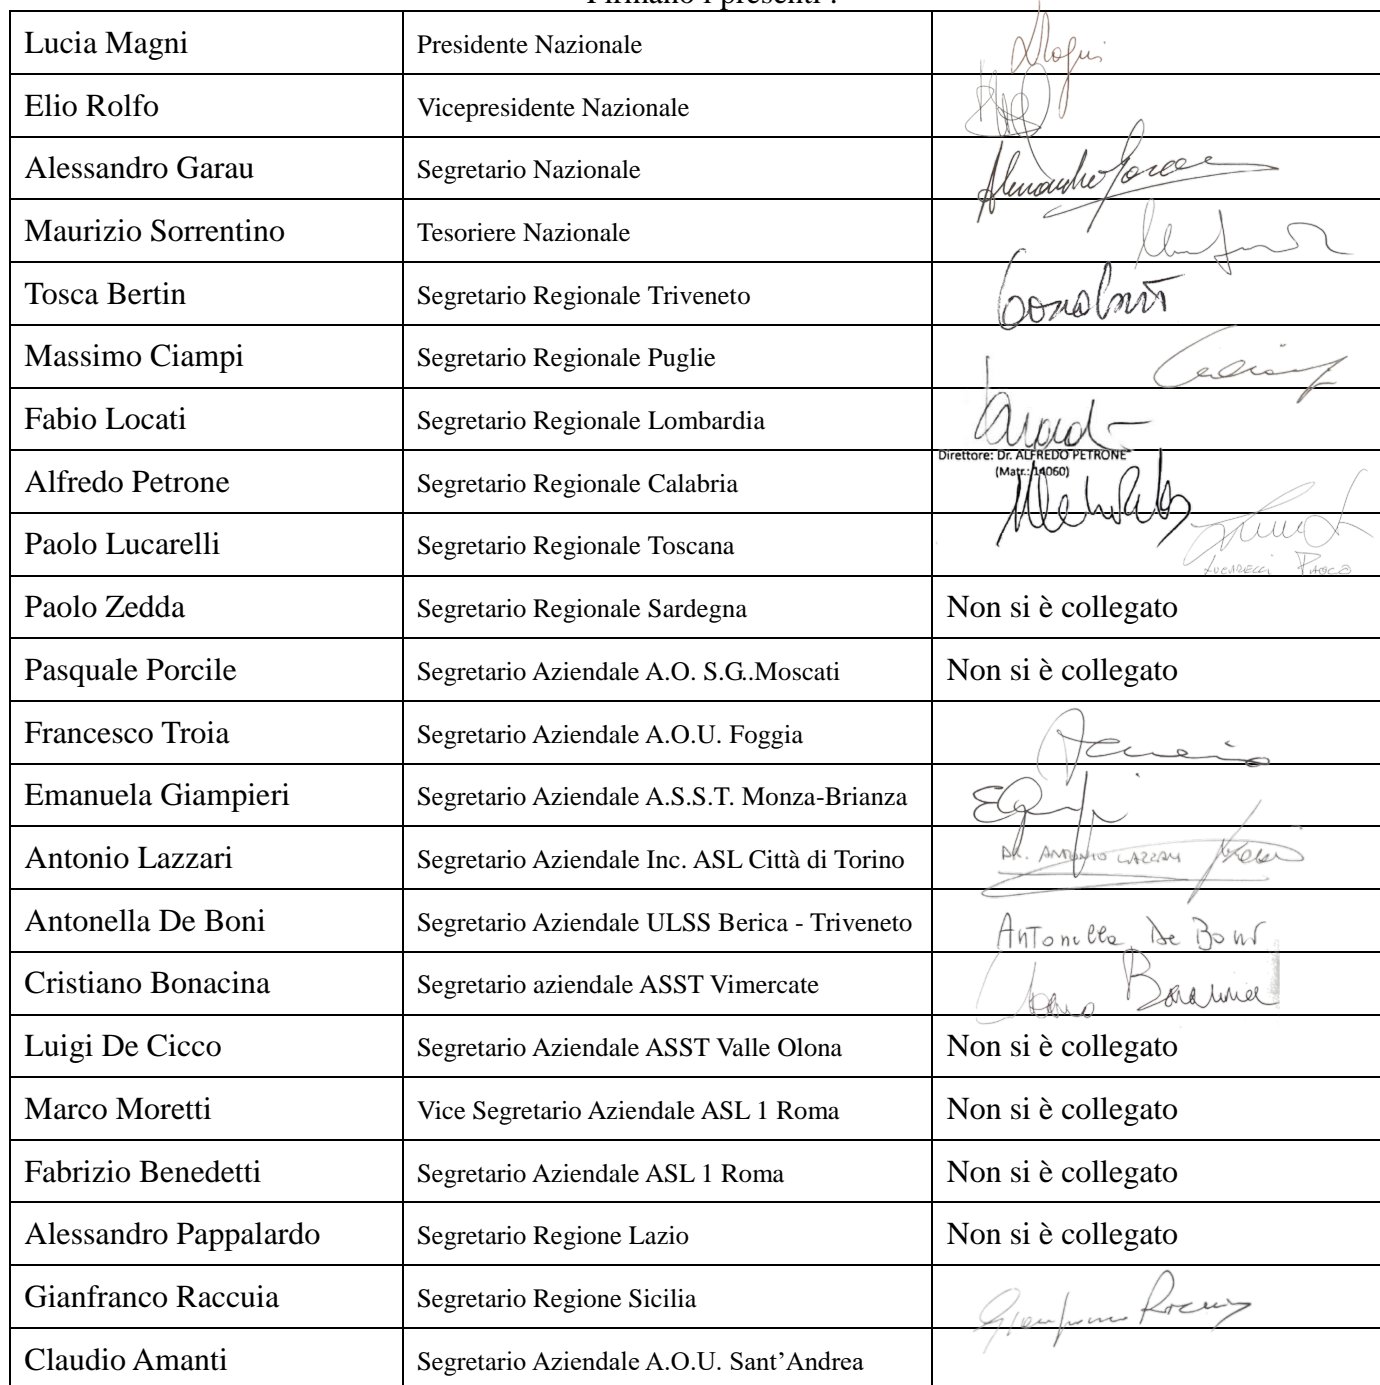 Firmano i presenti :
Lucia Magni Presidente Nazionale Magni
Elio Rolfo Vicepresidente Nazionale
Alessandro Garau Segretario Nazionale Alessandro Garau
Maurizio Sorrentino Tesoriere Nazionale
Tosca Bertin Segretario Regionale Triveneto
Massimo Ciampi Segretario Regionale Puglie
Fabio Locati Segretario Regionale Lombardia
Direttore: Dr. ALFREDO PETRONE
(Matr.:14060)
Alfredo Petrone Segretario Regionale Calabria
Paolo Lucarelli Segretario Regionale Toscana
LUCARELLI PAOLO
Paolo Zedda Segretario Regionale Sardegna Non si è collegato
Pasquale Porcile Segretario Aziendale A.O. S.G..Moscati Non si è collegato
Francesco Troia Segretario Aziendale A.O.U. Foggia
Emanuela Giampieri Segretario Aziendale A.S.S.T. Monza-Brianza
Antonio Lazzari Segretario Aziendale Inc. ASL Città di Torino DR. ANTONIO LAZZARI
Antonella De Boni Segretario Aziendale ULSS Berica - Triveneto Antonella De Boni
Cristiano Bonacina Segretario aziendale ASST Vimercate Bonacina
Luigi De Cicco Segretario Aziendale ASST Valle Olona Non si è collegato
Marco Moretti Vice Segretario Aziendale ASL 1 Roma Non si è collegato
Fabrizio Benedetti Segretario Aziendale ASL 1 Roma Non si è collegato
Alessandro Pappalardo Segretario Regione Lazio Non si è collegato
Gianfranco Raccuia Segretario Regione Sicilia Gianfranco Raccuia
Claudio Amanti Segretario Aziendale A.O.U. Sant’Andrea